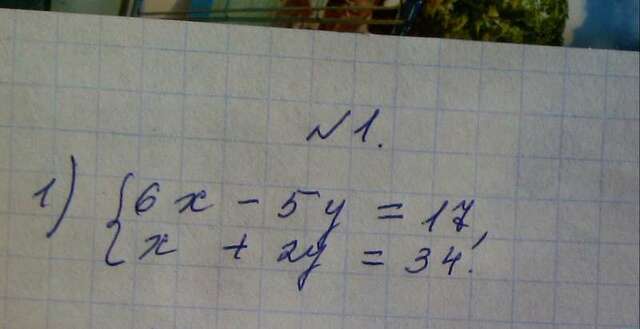 №1.
1) { 6x - 5y = 17,
x + 2y = 34.